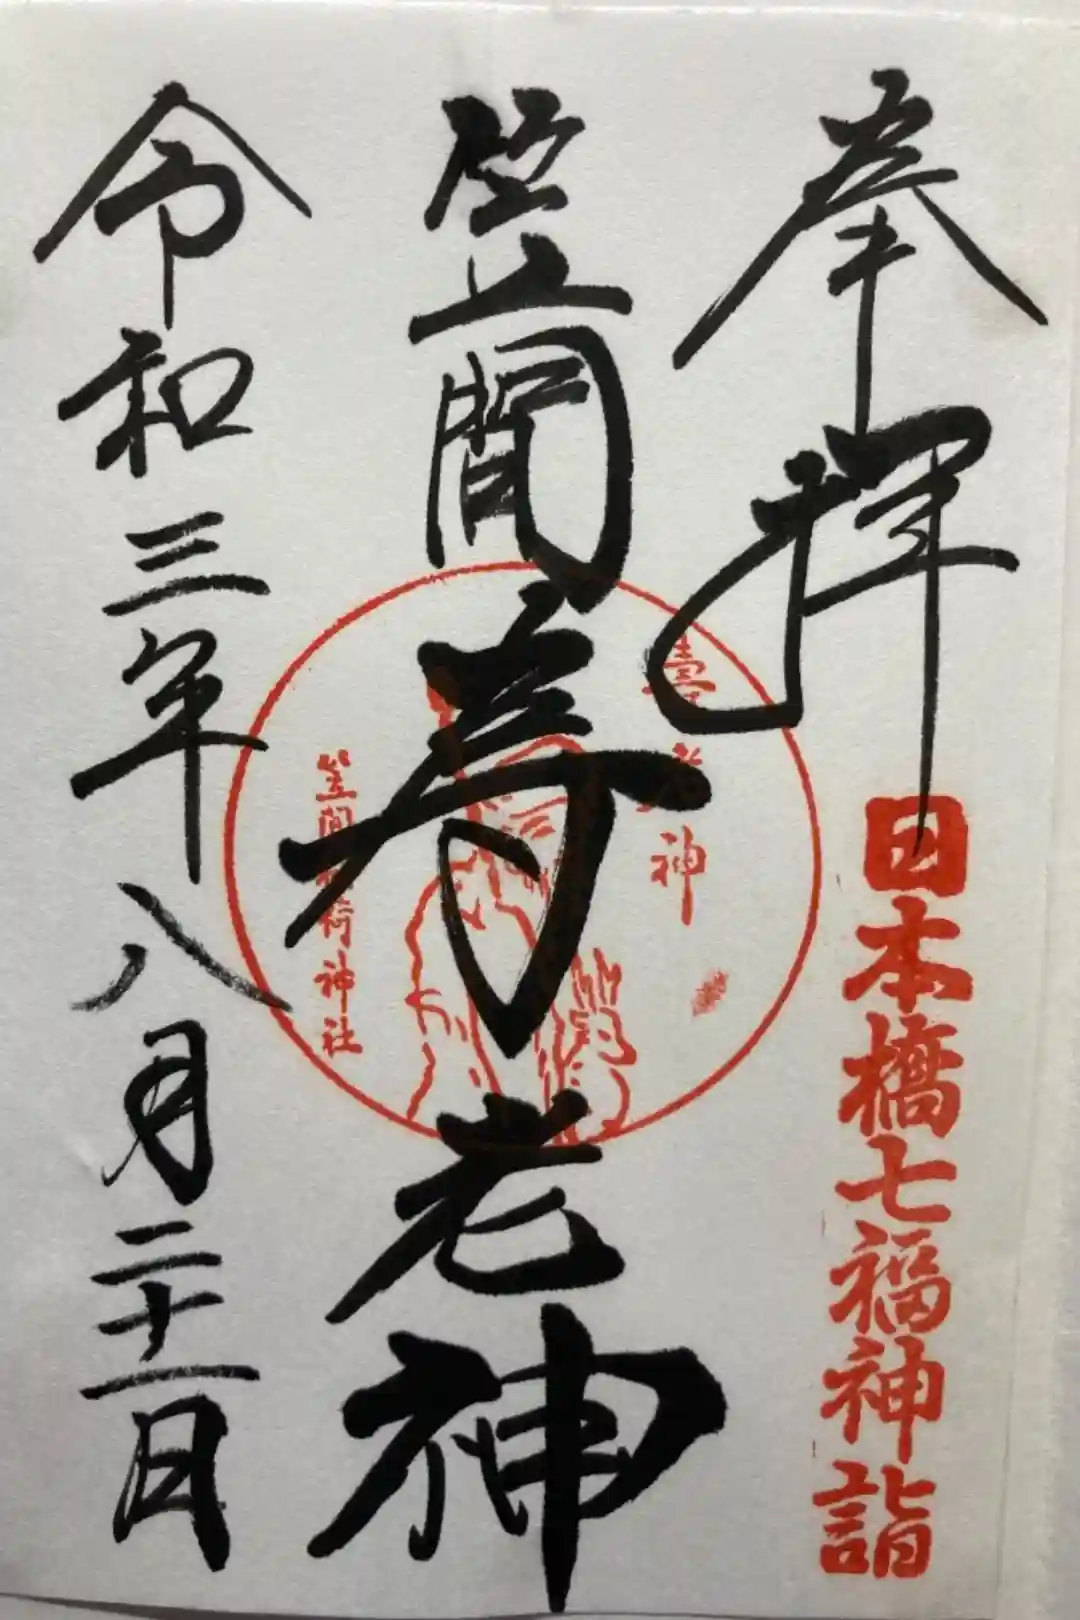 奉拝
日本橋七福神詣
笠間寿老神
壽老神
笠間稲荷神社
令和三年八月二十一日